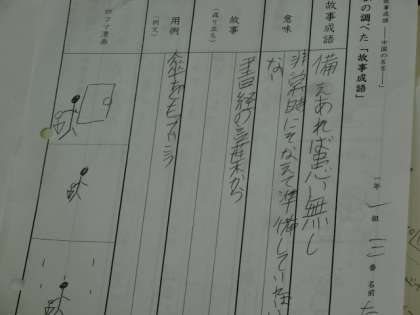 故事成語 ―中国の名言―
の調べた「故事成語」
一年 一組 三番 名前
故事成語
備えあれば患い無し
意味
非常時にそなえて準備していない
ない
故事
(成り立ち)
書経の言葉から
用例
(例文)
傘をもちあるこう
四コマ漫画